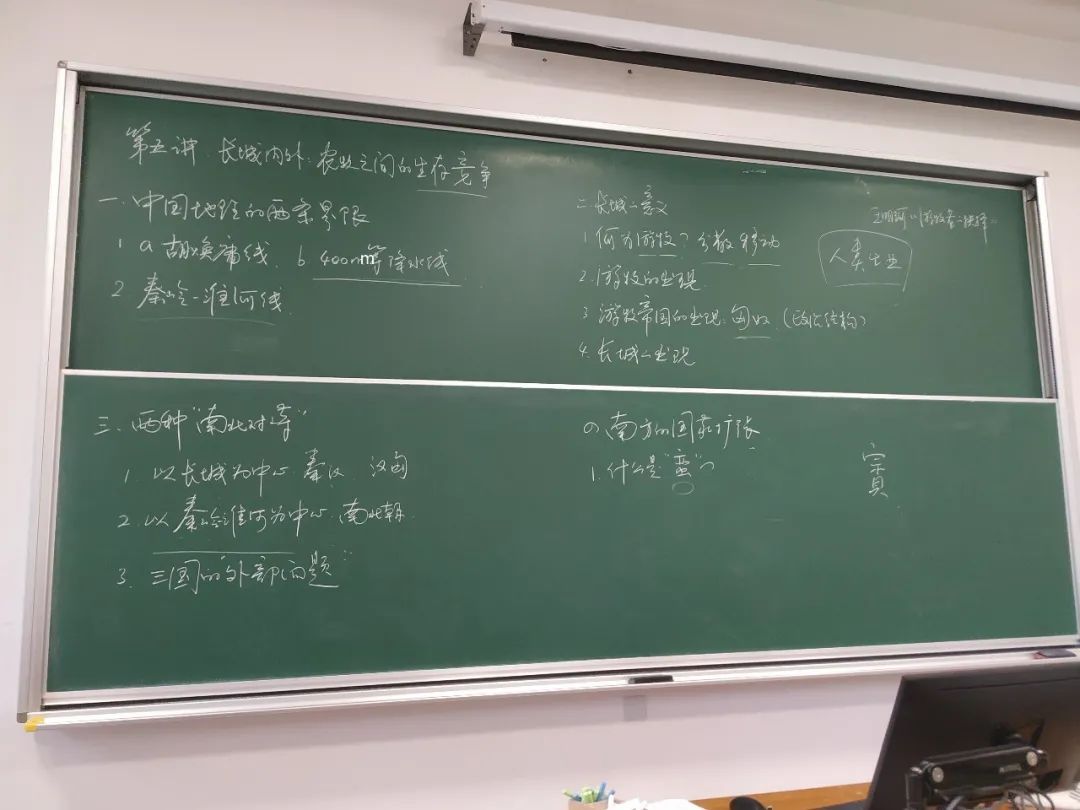 第五讲、长城内外：农牧之间的生存竞争
一、中国地理的两条界限
1 a 胡焕庸线、b. 400mm等降水线
2 秦岭-淮河线
二、长城之意义
1. 何为游牧？分散 移动
2. 游牧的出现
3. 游牧帝国的出现：匈奴（政治结构）
4. 长城之出现
王明珂《游牧者之抉择》
人类生业
三、两种“南北对峙”
1. 以长城为中心 秦汉、汉匈
2. 以秦岭淮河为中心、南北朝
3. 三国的“外部问题”
四、南方的国家扩张
1. 什么是“蛮”？
賨